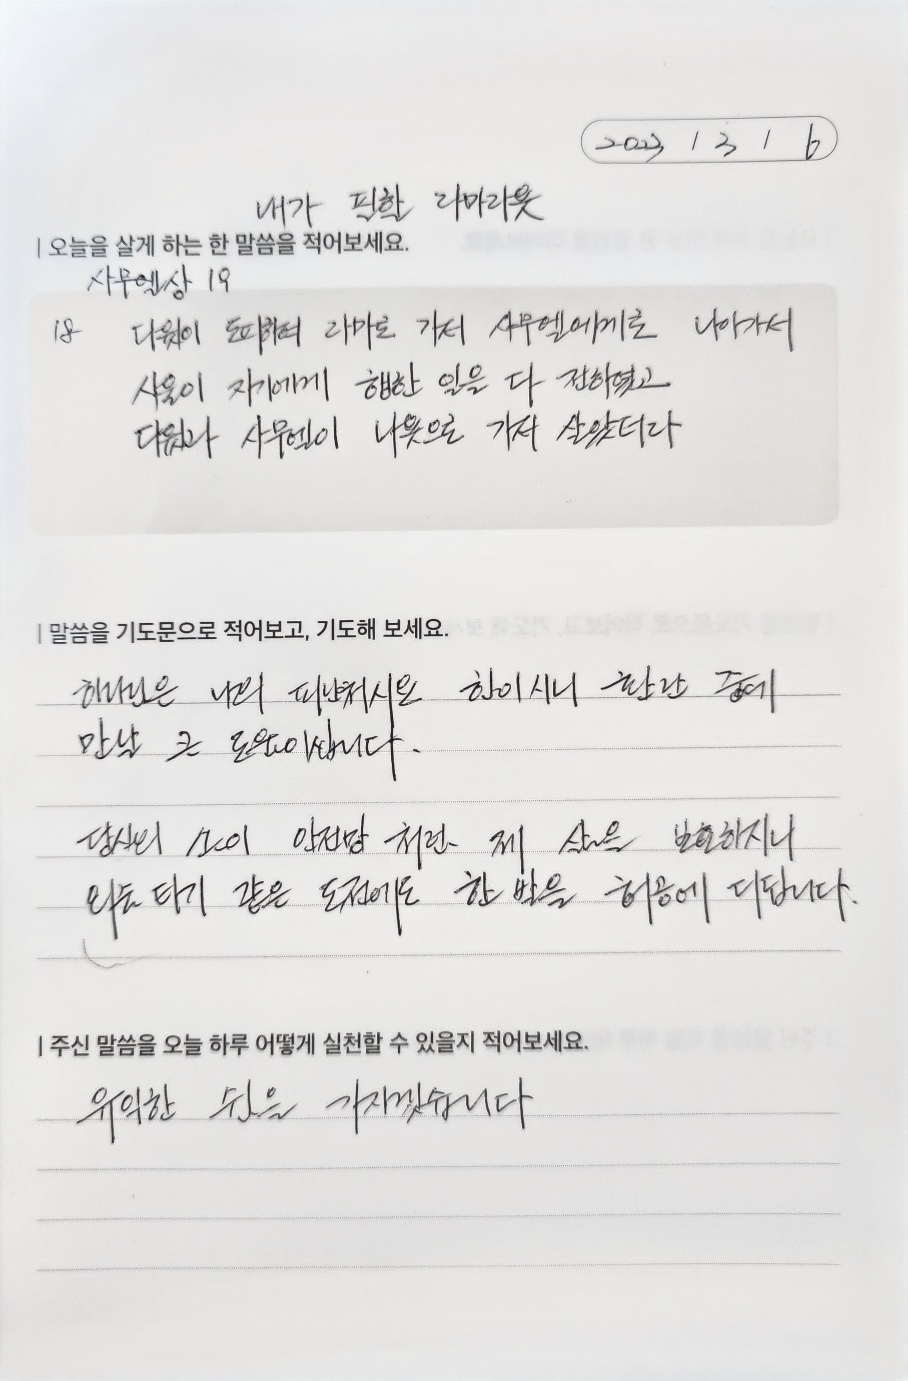 2023 / 3 / 6
내가 피할 라마라욧
| 오늘을 살게 하는 한 말씀을 적어보세요.
사무엘상 19
18 다윗이 도피하여 라마로 가서 사무엘에게로 나아가서
사울이 자기에게 행한 일을 다 전하였고
다윗과 사무엘이 나욧으로 가서 살았더라
| 말씀을 기도문으로 적어보고, 기도해 보세요.
하나님은 나의 피난처시요 힘이시니 환난 중에
만날 큰 도움이십니다.
당신의 손이 안전망 처럼 제 삶을 보호하시니
외줄타기 같은 도전에도 한 발을 허공에 디딥니다.
| 주신 말씀을 오늘 하루 어떻게 실천할 수 있을지 적어보세요.
유익한 쉼을 가지겠습니다